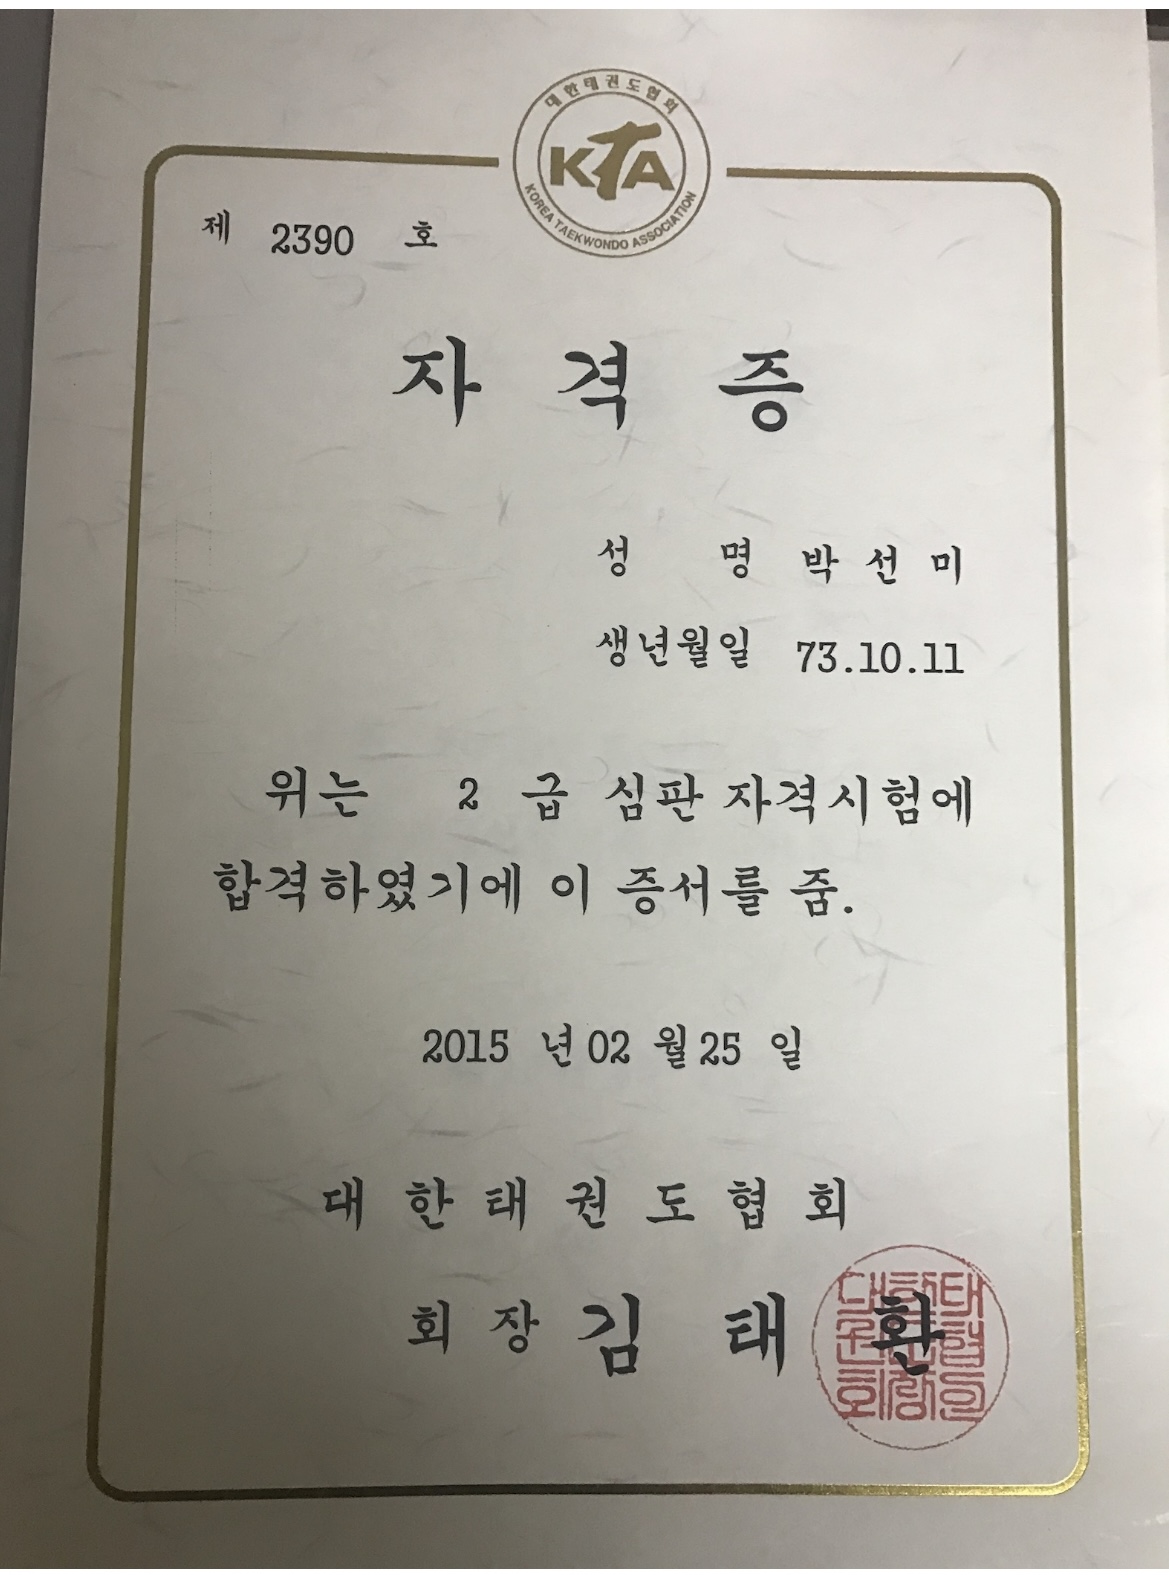 대한태권도협회
KTA
KOREA TAEKWONDO ASSOCIATION
제 2390 호
자격증
성 명 박선미
생년월일 73.10.11
위는 2 급 심판 자격시험에
합격하였기에 이 증서를 줌.
2015 년 02 월 25 일
대한태권도협회
회장 김태환